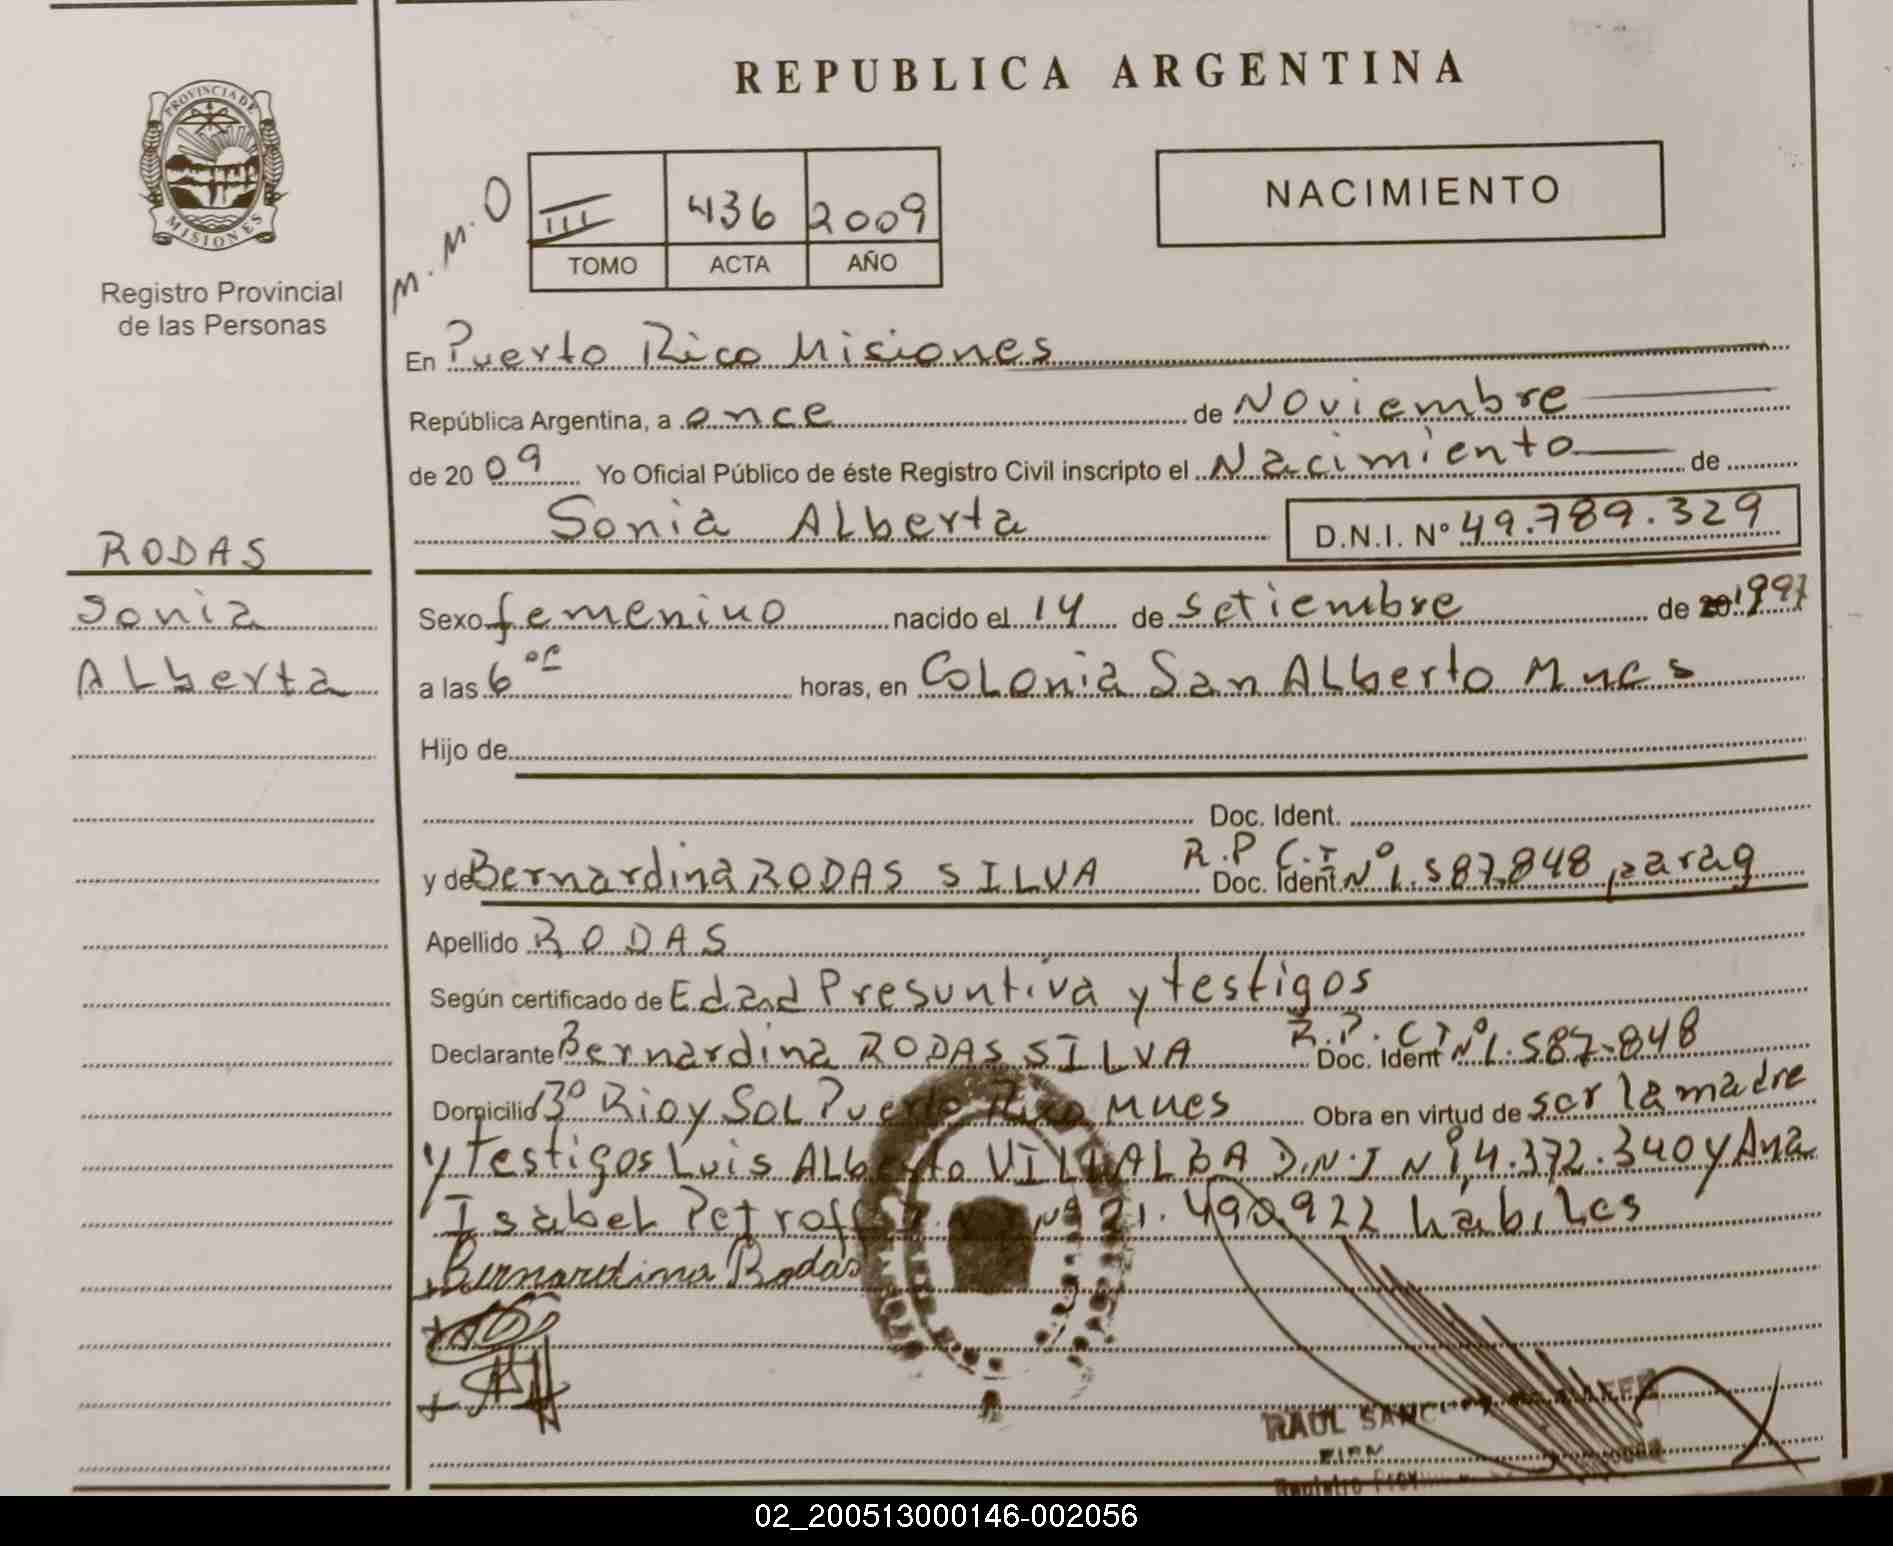 REPUBLICA ARGENTINA
PROVINCIA DE
MISIONES
Registro Provincial
de las Personas
M.M.O
III 436 2009
TOMO ACTA AÑO
NACIMIENTO
En Puerto Rico Misiones
República Argentina, a once de Noviembre
de 20 09 Yo Oficial Público de éste Registro Civil inscripto el Nacimiento de
Sonia Alberta D.N.I. Nº 49.789.329
RODAS
Sonia
Alberta
Sexo femenino nacido el 14 de Setiembre de 20 1997
a las 6 horas, en Colonia San Alberto Mnes
Hijo de
Doc. Ident.
y de Bernardina RODAS SILVA Doc. Ident. R.P C.I Nº 1.587.848 parag
Apellido RODAS
Según certificado de Edad Presuntiva y testigos
Declarante Bernardina RODAS SILVA Doc. Ident R.P. C I Nº 1.587.848
Domicilio Bº Rio y Sol Puerto Rico Mnes Obra en virtud de ser la madre
y testigos Luis Alberto VILLALBA D.N.I Nº 14.372.340 y Ana
Isabel Petroff Nº 21.490.922 hábiles
Bernardina Rodas
RAUL
02_200513000146-002056